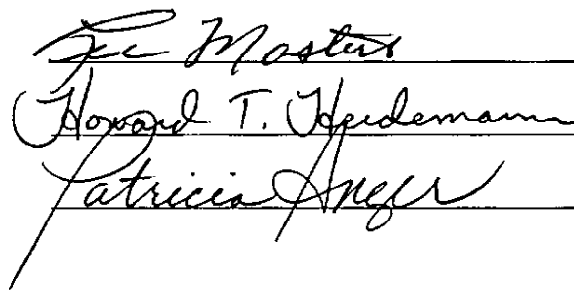 Lee Masters
Howard T. Heidemann
Patricia Anger